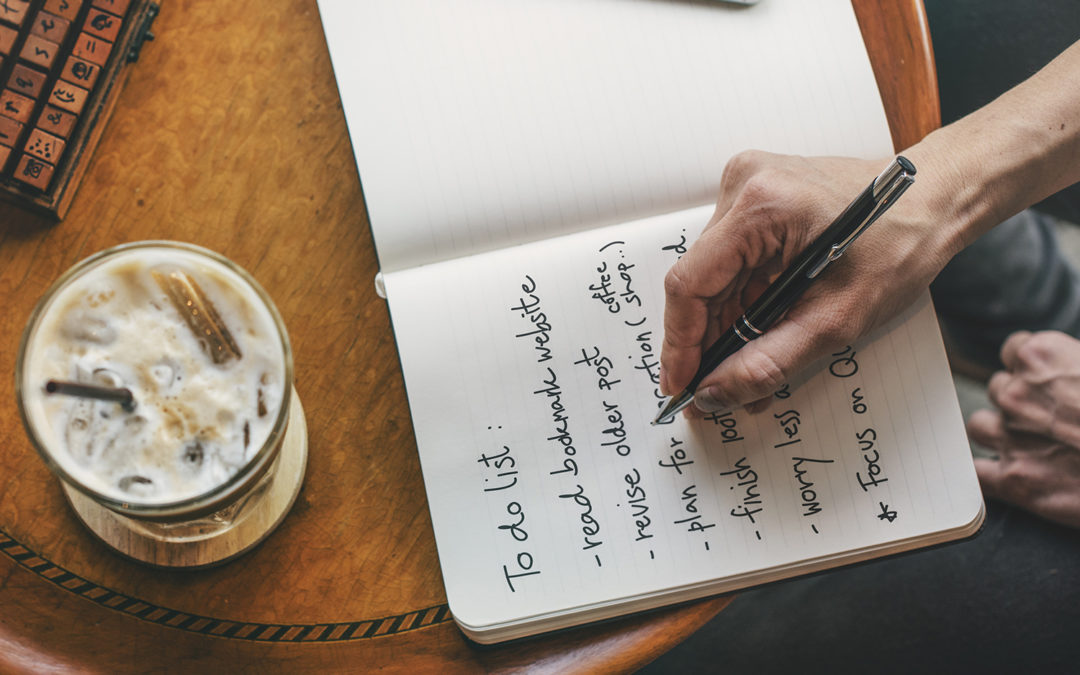 To do list :
- read bookmark website
- revise older post
- plan for ( coffee shop..)
- finish
- worry less
* Focus on